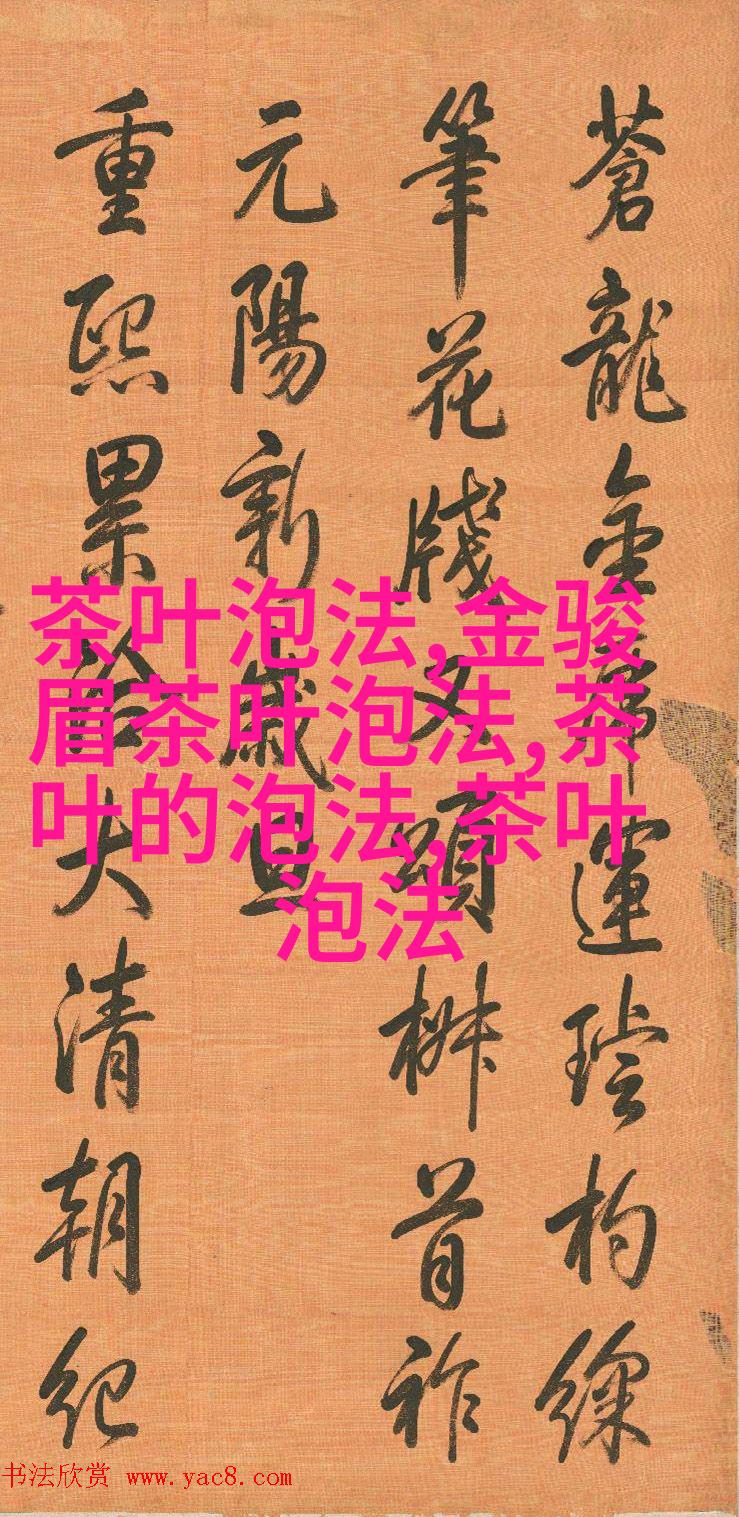 蒼龍金運杓
筆花牋又頌椒首祚
元陽新歲旦
重熙累洽大清朝紀
茶叶泡法,金骏
眉茶叶泡法,茶
叶的泡法,茶叶
泡法
书法欣赏 www.yac8.com